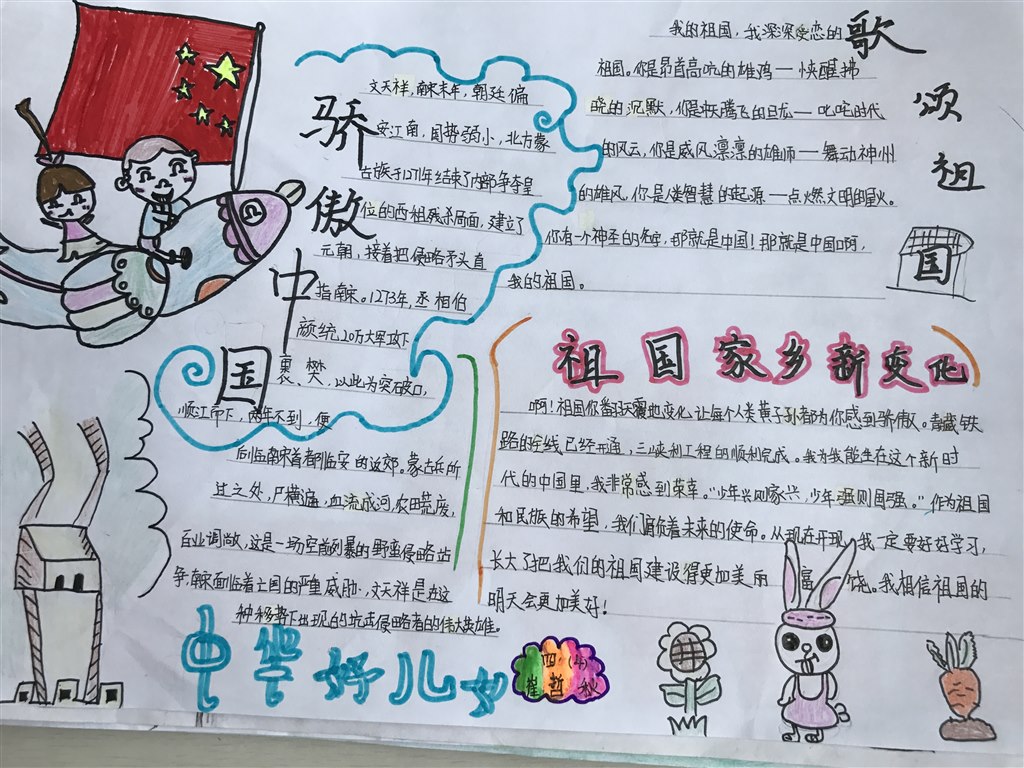 骄傲中国
文天祥,南宋末年,朝廷偏
安江南,国势弱小,北方蒙
古族于1271年结束了内部争夺皇
位的西祖残杀局面,建立了
元朝,接着把侵略矛头直
指南宋。1273年,丞相伯
颜统20万大军攻下
襄、樊,以此为突破口,
顺江而下,两年不到,便
后临南宋首都临安的近郊。蒙古兵所
过之处,尸横遍,血流成河,农田荒废,
百业调敝,这是一场空前烈暴的野蛮侵略站
争,南宋面临着亡国的严重威胁,文天祥是在这
种移势下出现的抗击侵略者的伟大英雄。
歌颂祖国
我的祖国,我深深爱恋的
祖国。你是昂首高吭的雄鸡—快醒拂
晓的沉默,你是
腾飞的巨龙—叱咤时代
的风云,你是威风凛凛的雄师—舞动神州
的雄风,你是人类智慧的起源—点燃文明的星火。
你有一个神圣的名字,那就是中国!那就是中国啊,
我的祖国。
祖国家乡新变化
啊!祖国你翻天覆地变化,让每个人类黄子孙都为你感到骄傲。青藏铁
路的全线已经开通,三峡利工程的顺利完成。我为我能生在这个新时
代的中国里,我非常感到荣幸。"少年兴则家兴,少年强则国强。"作为祖国
和民族的希望,我们肩负着未来的使命。从现在开现,我一定要好好学习,
长大了把我们的祖国建设得更加美丽富饶。我相信祖国的
明天会更加美好!
中华好儿女
四·(4)
崔哲秋